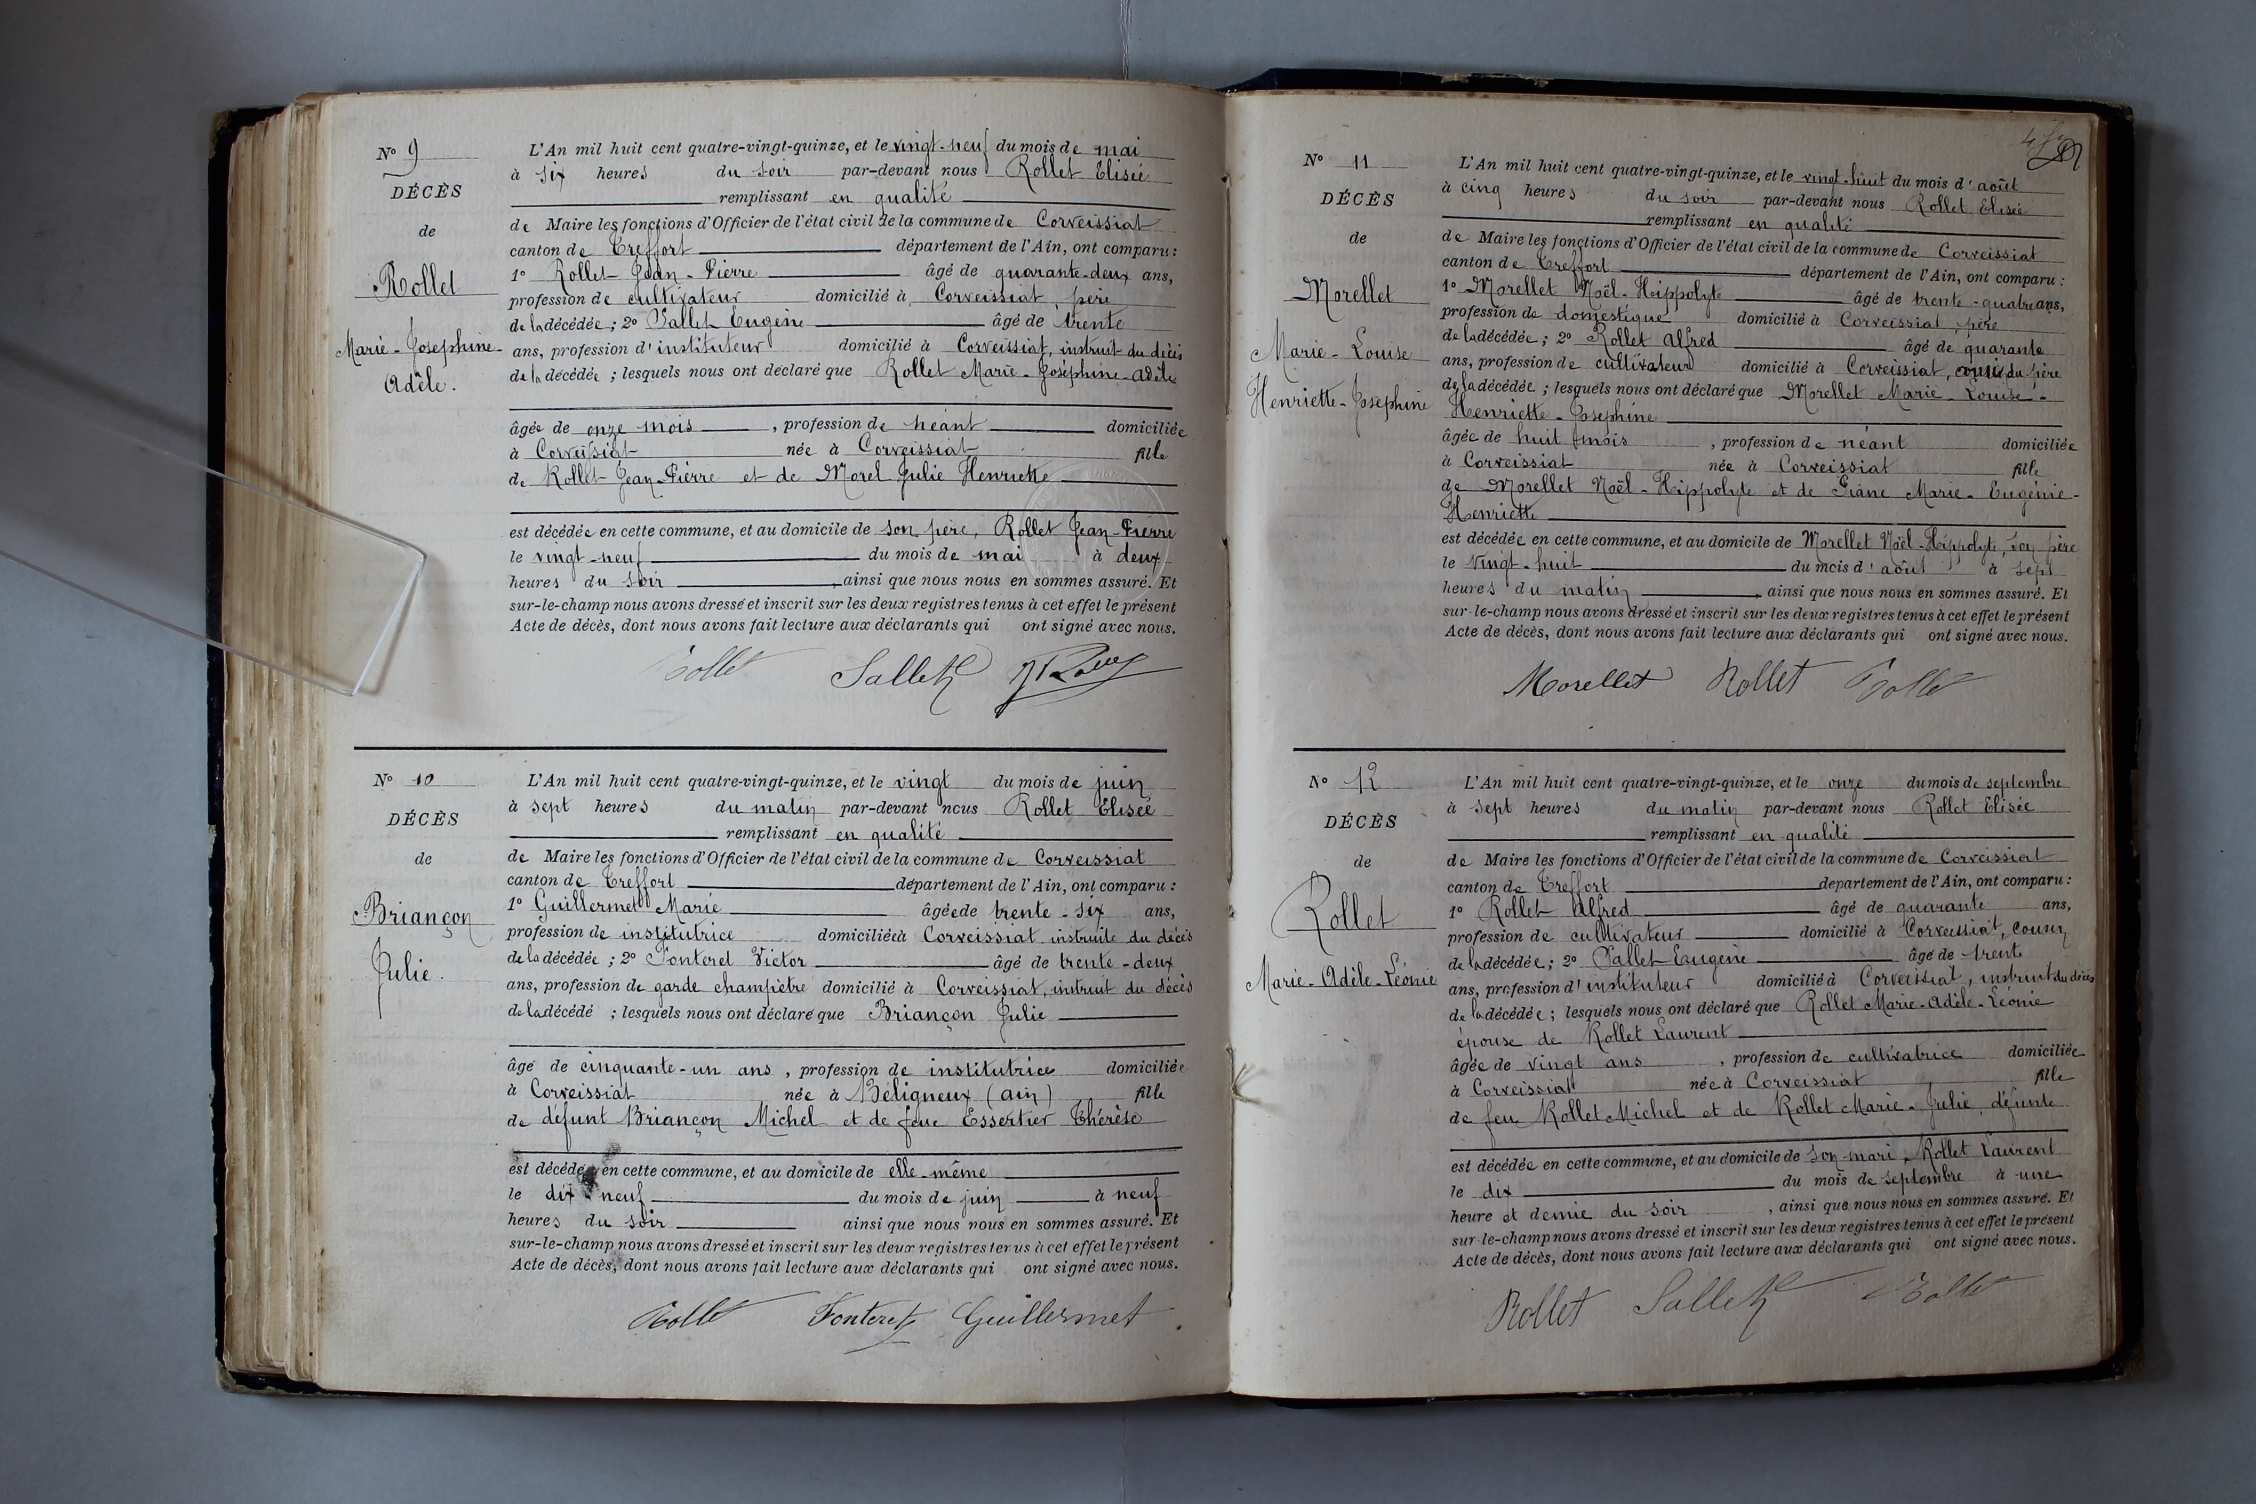 Nº 9
DÉCÈS
de
Rollet
Marie-Joséphine-
Adèle.
L'An mil huit cent quatre-vingt-quinze, et le vingt-neuf du mois de mai
à six heures du soir par-devant nous Rollet Elisée
remplissant en qualité
de Maire les fonctions d'Officier de l'état civil de la commune de Corveissiat
canton de Treffort département de l'Ain, ont comparu :
1º Rollet Jean-Pierre âgé de quarante-deux ans,
profession de cultivateur domicilié à Corveissiat, père
de la décédée ; 2º Sallet Eugène âgé de trente
ans, profession d'instituteur domicilié à Corveissiat, instruit du décès
de la décédée ; lesquels nous ont déclaré que Rollet Marie-Joséphine-Adèle
âgée de onze mois , profession de néant domiciliée
à Corveissiat née à Corveissiat fille
de Rollet Jean-Pierre et de Morel Julie Henriette
est décédée en cette commune, et au domicile de son père, Rollet Jean-Pierre
le vingt-neuf du mois de mai à deux
heures du soir , ainsi que nous nous en sommes assuré. Et
sur-le-champ nous avons dressé et inscrit sur les deux registres tenus à cet effet le présent
Acte de décès, dont nous avons fait lecture aux déclarants qui ont signé avec nous.
Rollet Sallet
Nº 10
DÉCÈS
de
Briançon
Julie.
L'An mil huit cent quatre-vingt-quinze, et le vingt du mois de juin
à sept heures du matin par-devant nous Rollet Elisée
remplissant en qualité
de Maire les fonctions d'Officier de l'état civil de la commune de Corveissiat
canton de Treffort département de l'Ain, ont comparu :
1º Guillermet Marie âgée de trente-six ans,
profession de institutrice domiciliée à Corveissiat instruite du décès
de la décédée ; 2º Fonteret Victor âgé de trente-deux
ans, profession de garde champêtre domicilié à Corveissiat, instruit du décès
de la décédé ; lesquels nous ont déclaré que Briançon Julie
âgé de cinquante-un ans , profession de institutrice domiciliée
à Corveissiat née à Béligneux (Ain) fille
de défunt Briançon Michel et de feue Essertier Thérèse
est décédée en cette commune, et au domicile de elle-même
le dix-neuf du mois de juin à neuf
heures du soir ainsi que nous nous en sommes assuré. Et
sur-le-champ nous avons dressé et inscrit sur les deux registres tenus à cet effet le présent
Acte de décès, dont nous avons fait lecture aux déclarants qui ont signé avec nous.
Rollet Fonteret Guillermet
Nº 11
DÉCÈS
de
Morellet
Marie-Louise
Henriette-Joséphine
L'An mil huit cent quatre-vingt-quinze, et le vingt-huit du mois d'août
à cinq heures du soir par-devant nous Rollet Elisée
remplissant en qualité
de Maire les fonctions d'Officier de l'état civil de la commune de Corveissiat
canton de Treffort département de l'Ain, ont comparu :
1º Morellet Noël-Hippolyte âgé de trente-quatre ans,
profession de domestique domicilié à Corveissiat, père
de la décédée ; 2º Rollet Alfred âgé de quarante
ans, profession de cultivateur domicilié à Corveissiat, cousin du père
de la décédée ; lesquels nous ont déclaré que Morellet Marie-Louise-
Henriette-Joséphine
âgée de huit mois , profession de néant domiciliée
à Corveissiat née à Corveissiat fille
de Morellet Noël-Hippolyte et de Piane Marie-Eugénie-
Henriette
est décédée en cette commune, et au domicile de Morellet Noël-Hippolyte, son père
le vingt-huit du mois d'août à sept
heures du matin , ainsi que nous nous en sommes assuré. Et
sur-le-champ nous avons dressé et inscrit sur les deux registres tenus à cet effet le présent
Acte de décès, dont nous avons fait lecture aux déclarants qui ont signé avec nous.
Morellet Rollet Rollet
Nº 12
DÉCÈS
de
Rollet
Marie-Adèle-Léonie
L'An mil huit cent quatre-vingt-quinze, et le onze du mois de septembre
à sept heures du matin par-devant nous Rollet Elisée
remplissant en qualité
de Maire les fonctions d'Officier de l'état civil de la commune de Corveissiat
canton de Treffort département de l'Ain, ont comparu :
1º Rollet Alfred âgé de quarante ans,
profession de cultivateur domicilié à Corveissiat, cousin
de la décédée ; 2º Sallet Eugène âgé de trente
ans, profession d'instituteur domicilié à Corveissiat, instruit du décès
de la décédée ; lesquels nous ont déclaré que Rollet Marie-Adèle-Léonie
épouse de Rollet Laurent
âgée de vingt ans , profession de cultivatrice domiciliée
à Corveissiat née à Corveissiat , fille
de feu Rollet Michel et de Rollet Marie-Julie, défunte
est décédée en cette commune, et au domicile de son mari, Rollet Laurent
le dix du mois de septembre à une
heure et demie du soir , ainsi que nous nous en sommes assuré. Et
sur-le-champ nous avons dressé et inscrit sur les deux registres tenus à cet effet le présent
Acte de décès, dont nous avons fait lecture aux déclarants qui ont signé avec nous.
Rollet Sallet Rollet